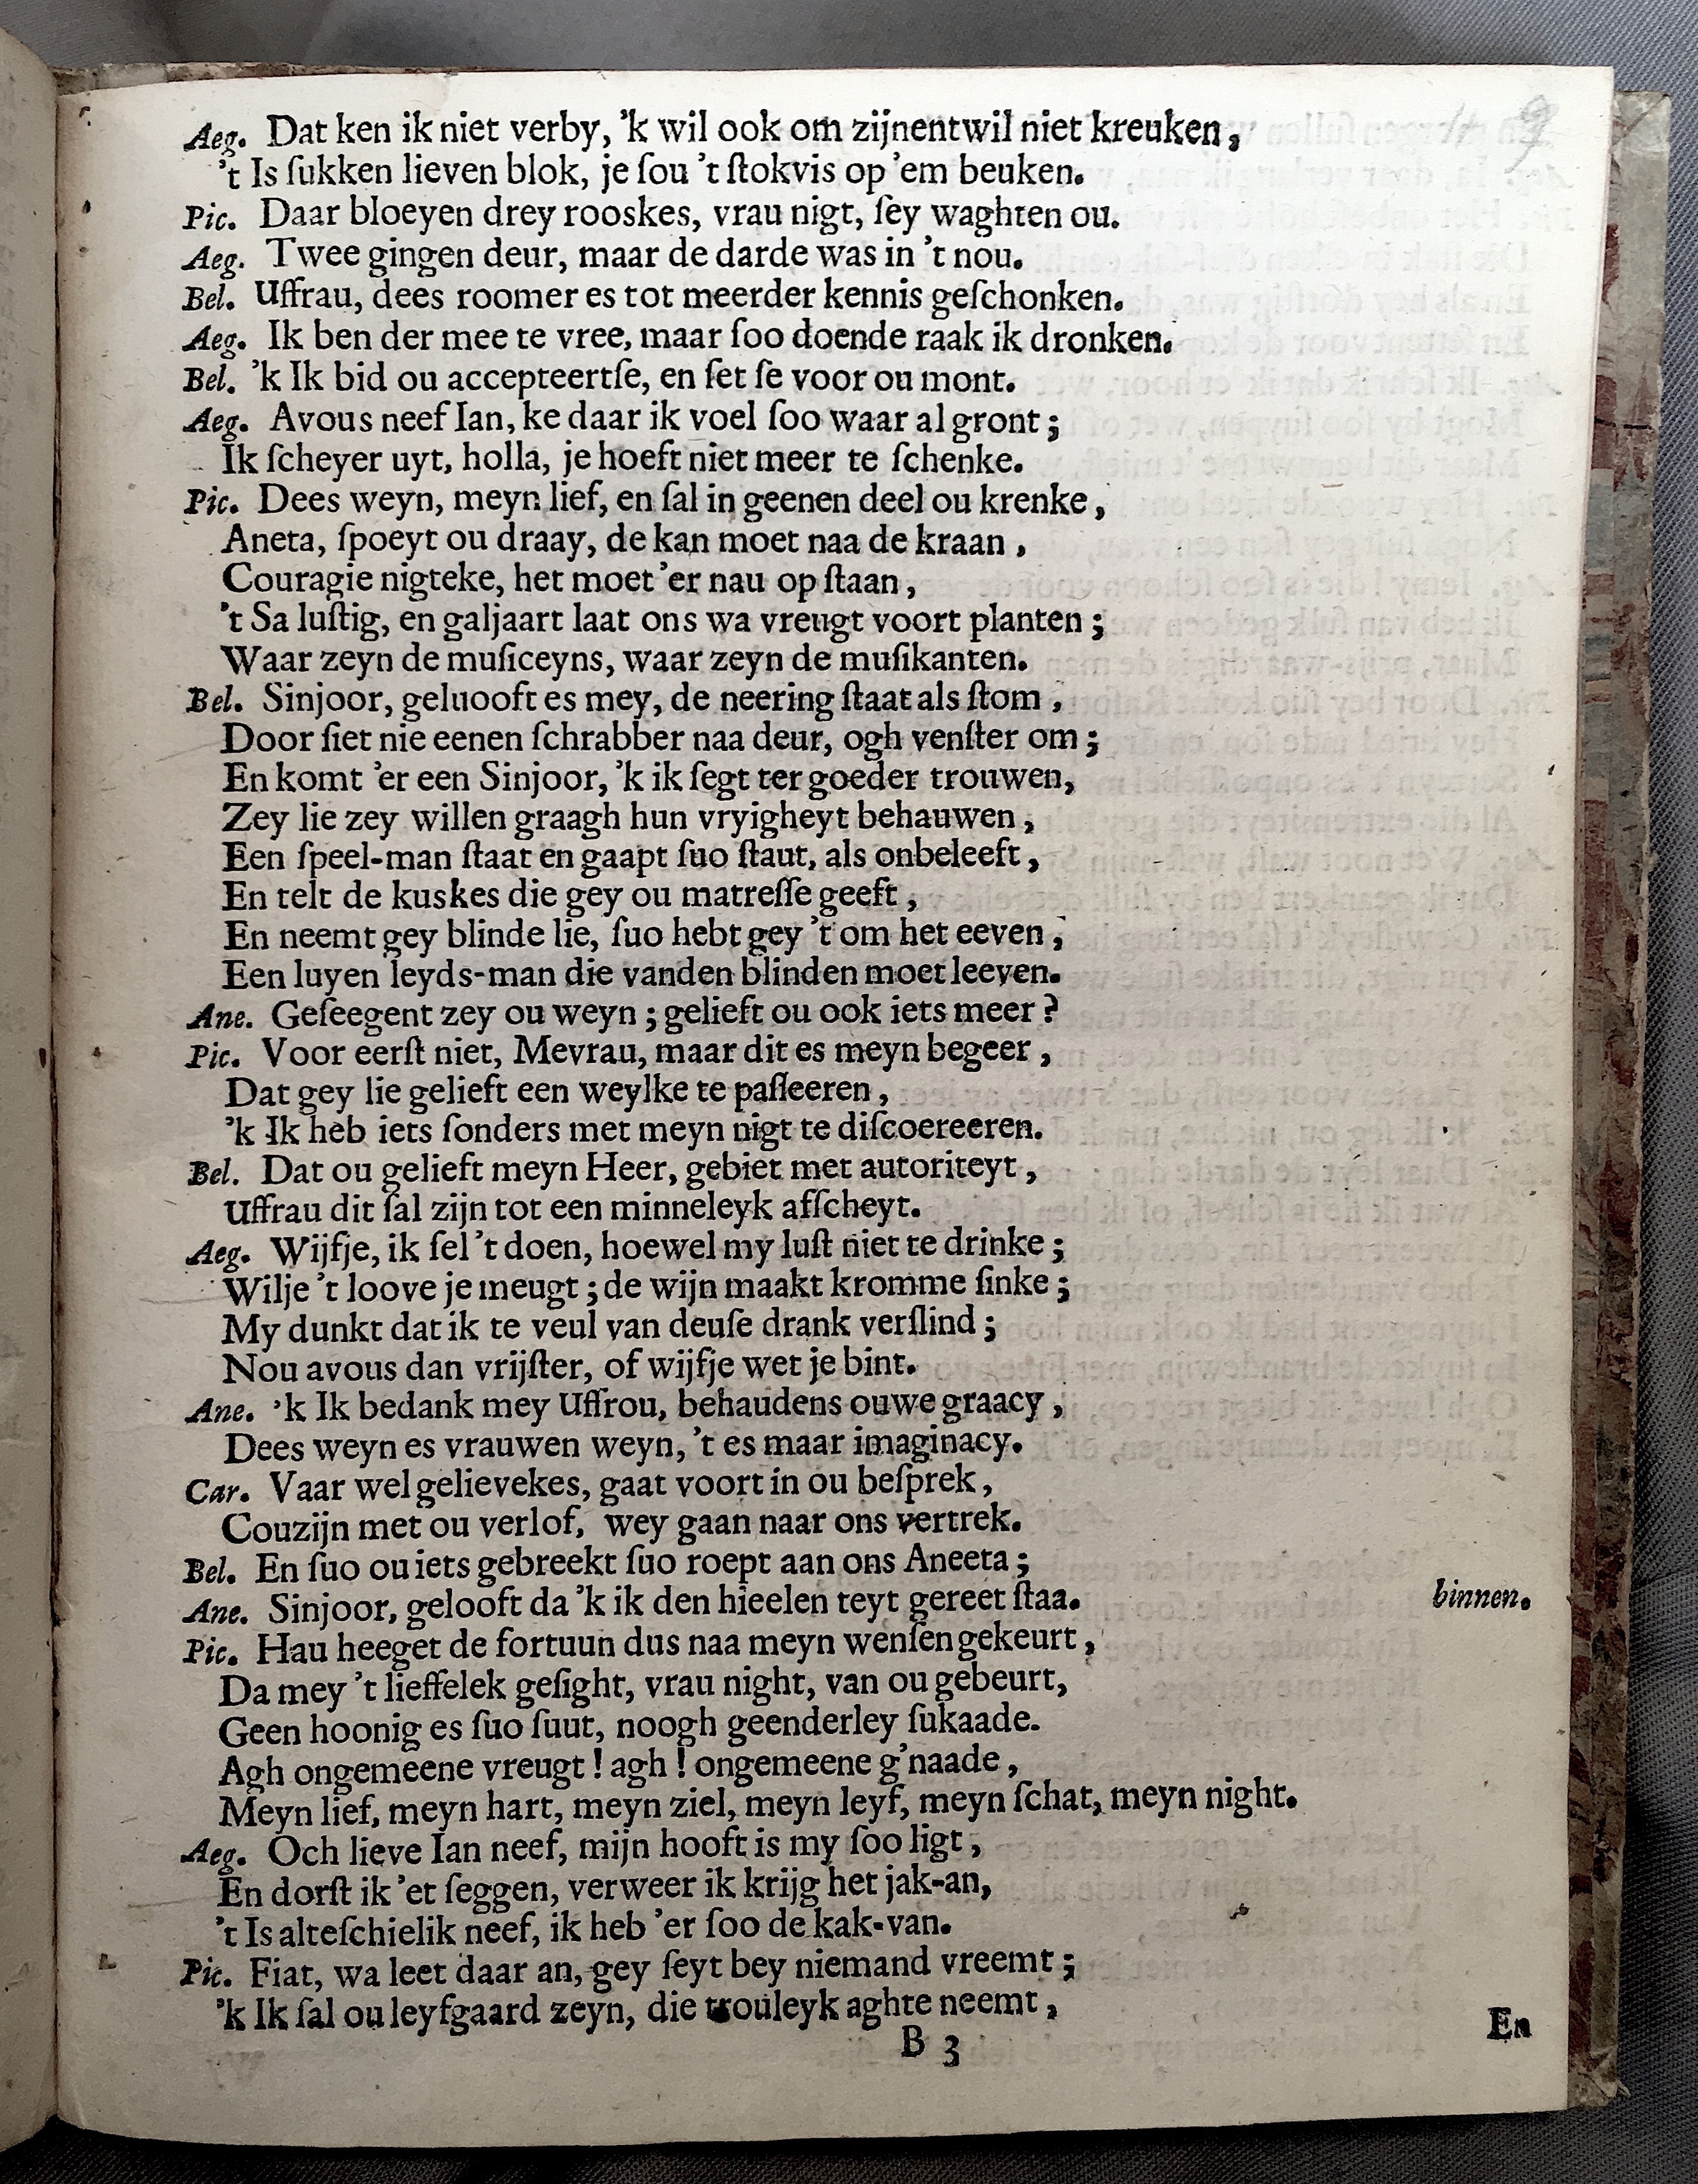 9
Aeg. Dat ken ik niet verby, 'k wil ook om zijnentwil niet kreuken,
't Is ſukken lieven blok, je ſou 't ſtokvis op 'em beuken.
Pic. Daar bloeyen drey rooskes, vrau nigt, ſey waghten ou.
Aeg. Twee gingen deur, maar de darde was in 't nou.
Bel. Uffrau, dees roomer es tot meerder kennis geſchonken.
Aeg. Ik ben der mee te vree, maar ſoo doende raak ik dronken.
Bel. 'k Ik bid ou accepteertſe, en ſet ſe voor ou mont.
Aeg. Avous neef Ian, ke daar ik voel ſoo waar al gront;
Ik ſcheyer uyt, holla, je hoeft niet meer te ſchenke.
Pic. Dees weyn, meyn lief, en ſal in geenen deel ou krenke,
Aneta, ſpoeyt ou draay, de kan moet naa de kraan,
Couragie nigteke, het moet 'er nau op ſtaan,
't Sa luſtig, en galjaart laat ons wa vreugt voort planten;
Waar zeyn de muſiceyns, waar zeyn de muſikanten.
Bel. Sinjoor, geluooft es mey, de neering ſtaat als ſtom,
Door ſiet nie eenen ſchrabber naa deur, ogh venſter om;
En komt 'er een Sinjoor, 'k ik ſegt ter goeder trouwen,
Zey lie zey willen graagh hun vryigheyt behauwen,
Een ſpeel-man ſtaat en gaapt ſuo ſtaut, als onbeleeft,
En telt de kuskes die gey ou matreſſe geeft,
En neemt gey blinde lie, ſuo hebt gey 't om het eeven,
Een luyen leyds-man die vanden blinden moet leeven.
Ane. Geſeegent zey ou weyn; gelieft ou ook iets meer?
Pic. Voor eerſt niet, Mevrau, maar dit es meyn begeer,
Dat gey lie gelieft een weylke te paſſeeren,
'k Ik heb iets ſonders met meyn nigt te diſcoereeren.
Bel. Dat ou gelieft meyn Heer, gebiet met autoriteyt,
Uffrau dit ſal zijn tot een minneleyk afſcheyt.
Aeg. Wijfje, ik ſel 't doen, hoewel my luſt niet te drinke;
Wilje 't loove je meugt; de wijn maakt kromme ſinke;
My dunkt dat ik te veul van deuſe drank verſlind;
Nou avous dan vrijſter, of wijfje wet je bint.
Ane. 'k Ik bedank mey Uffrou, behaudens ouwe graacy,
Dees weyn es vrauwen weyn, 't es maar imaginacy.
Car. Vaar wel gelievekes, gaat voort in ou beſprek,
Couzijn met ou verlof, wey gaan naar ons vertrek.
Bel. En ſuo ou iets gebreekt ſuo roept aan ons Aneeta;
Ane. Sinjoor, gelooft da 'k ik den hieelen teyt gereet ſtaa. binnen.
Pic. Hau heeget de fortuun dus naa meyn wenſen gekeurt,
Da mey 't lieffelek geſight, vrau night, van ou gebeurt,
Geen hoonig es ſuo ſuut, noogh geenderley ſukaade.
Agh ongemeene vreugt! agh! ongemeene g'naade,
Meyn lief, meyn hart, meyn ziel, meyn leyf, meyn ſchat, meyn night.
Aeg. Och lieve Ian neef, mijn hooft is my ſoo ligt,
En dorſt ik 'et ſeggen, verweer ik krijg het jak-an,
't Is alteſchielik neef, ik heb 'er ſoo de kak-van.
Pic. Fiat, wa leet daar an, gey ſeyt bey niemand vreemt;
'k Ik ſal ou leyfgaard zeyn, die trouleyk aghte neemt,
B 3
En